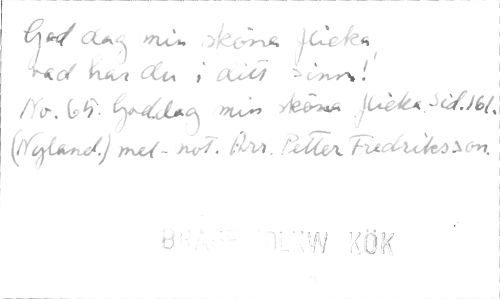 God dag min sköna flicka,
vad har du i ditt sinn!
No. 65. Goddag min sköna flicka. Sid. 161.
(Nyland.) mel-not. Arr. Petter Fredriksson.
KÖK